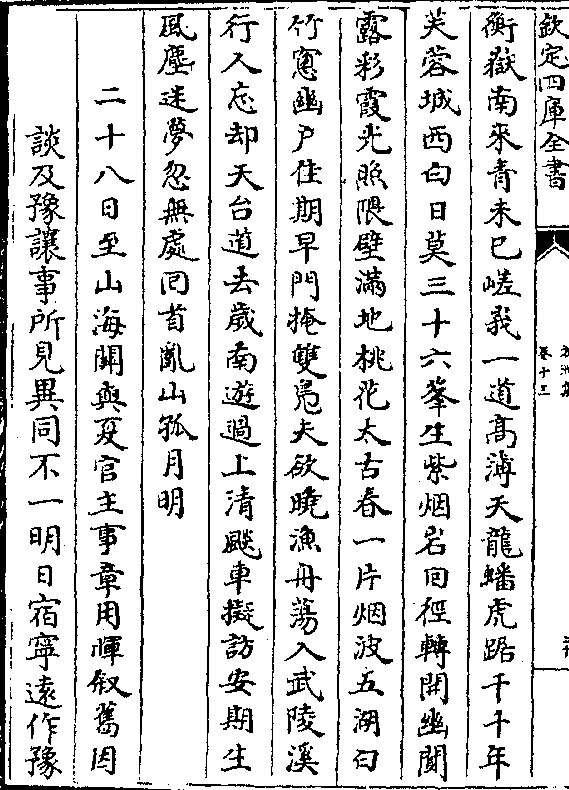 欽定四庫全書
卷十三
衡嶽南來青未已嵯峩一道髙薄天龍蟠虎踞千千年
芙蓉城西白日莫三十六峯生紫烟岩回徑轉開幽聞
露彩霞光照隈壁滿地桃花太古春一片烟波五湖白
竹窓幽戶住期早門掩雙鳬天欲曉漁舟蕩入武陵溪
行人忘却天台道去歳南遊過上清飈車擬訪安期生
風塵迷夢忽無處回首亂山孤月明
二十八日至山海關與夏官主事章用惲叙舊因
談及豫讓事所見異同不一明日宿寧遠作豫